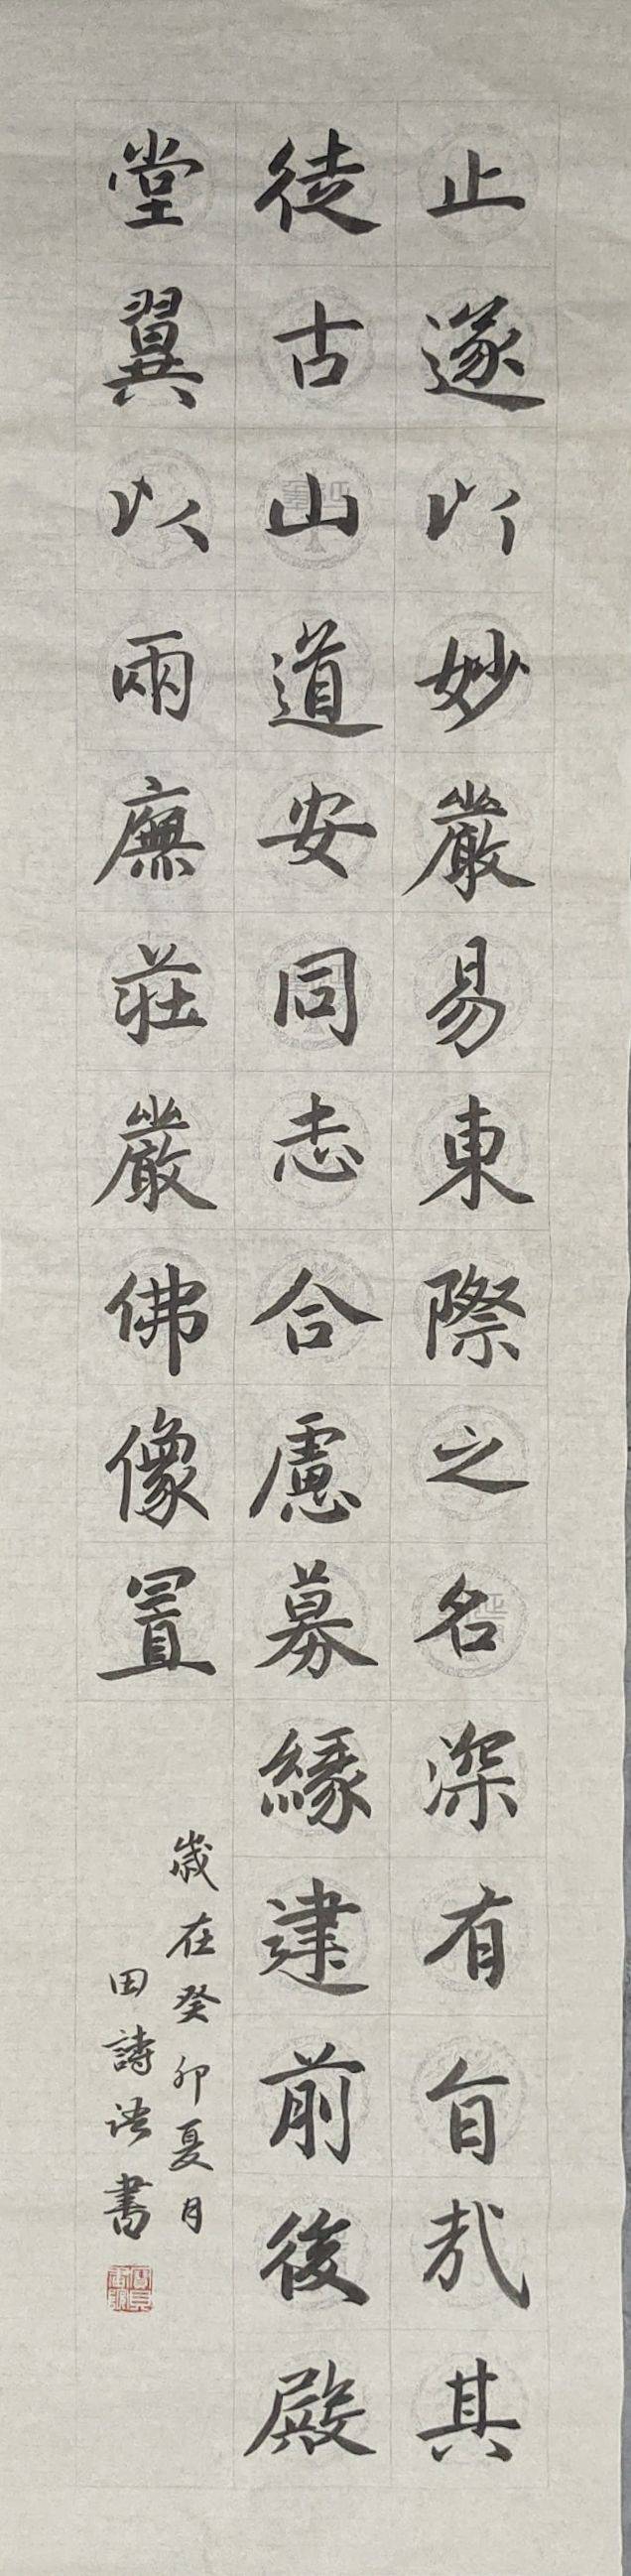 止遂以妙嚴易東際之名深有旨哉其
徒古山道安同志合慮募緣建前後殿
堂翼以兩廡莊嚴佛像置
歲在癸卯夏月
田詩語書